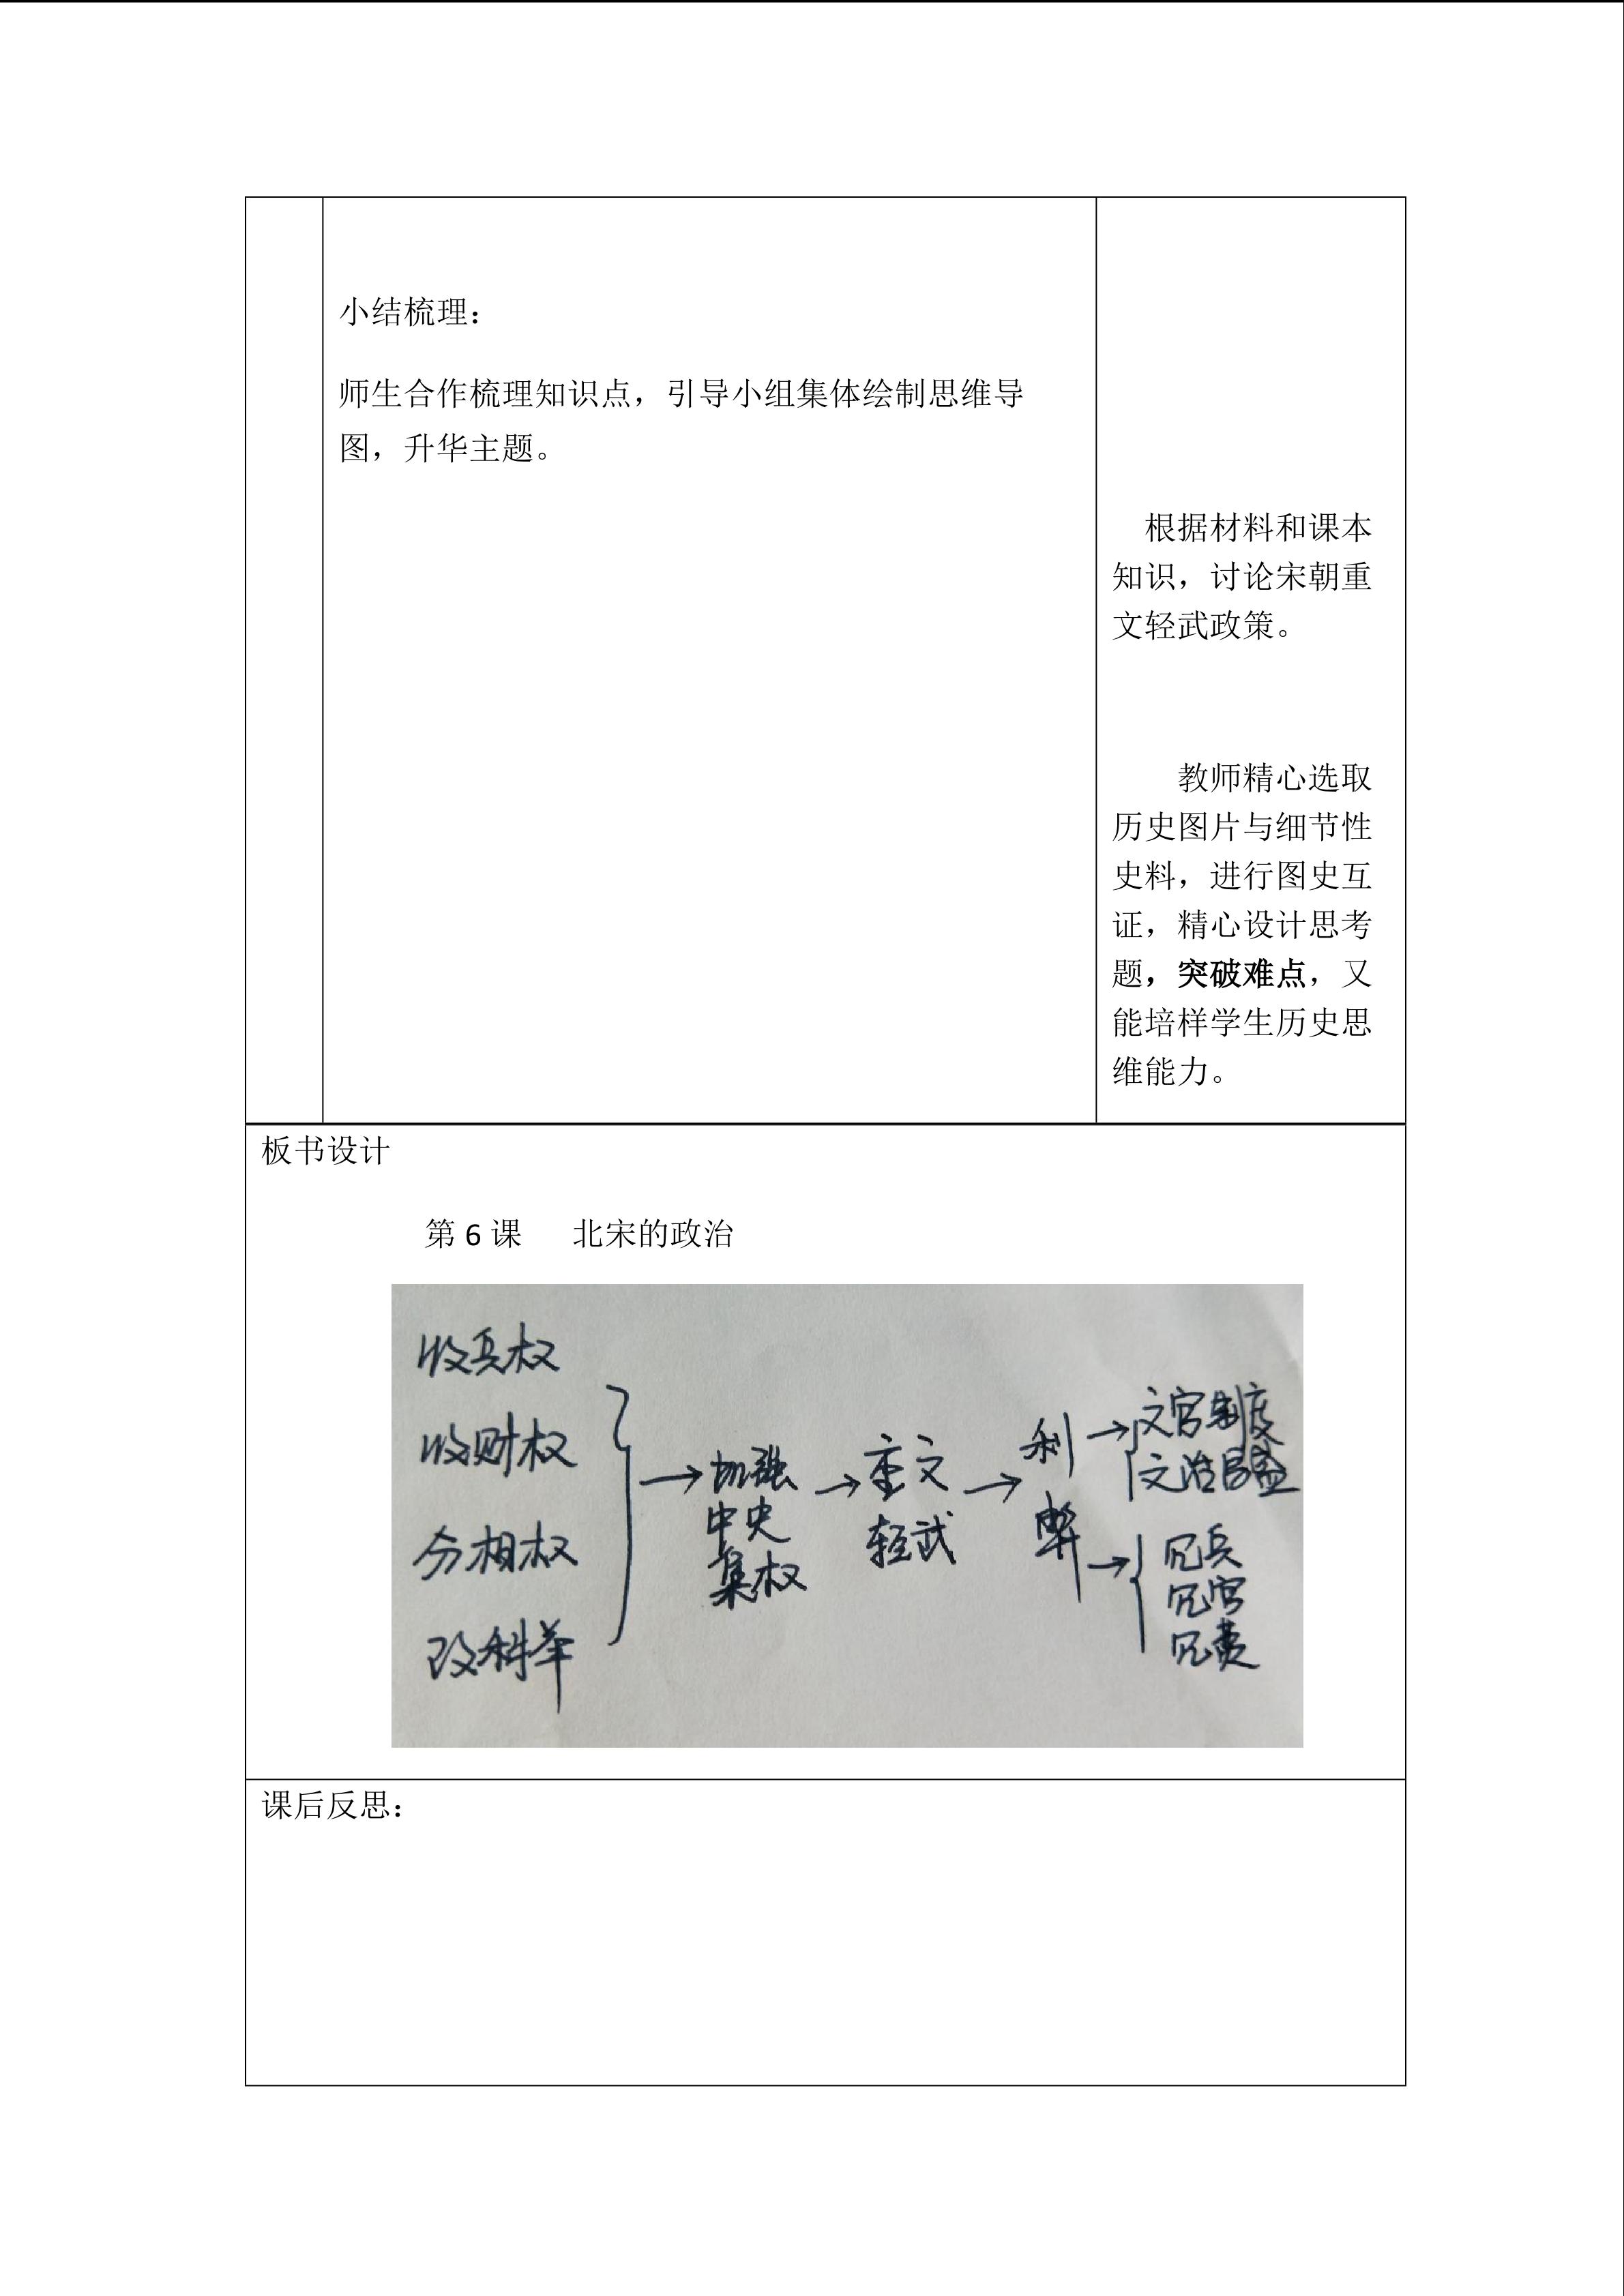 小结梳理：
师生合作梳理知识点，引导小组集体绘制思维导
图，升华主题。
根据材料和课本
知识，讨论宋朝重
文轻武政策。
教师精心选取
历史图片与细节性
史料，进行图史互
证，精心设计思考
题，突破难点，又
能培样学生历史思
维能力。
板书设计
第 6 课 北宋的政治
收兵权
收财权
分相权
改科举
加强
中央
集权
重文
轻武
利
弊
文官制度
文治
冗兵
冗官
冗费
课后反思：